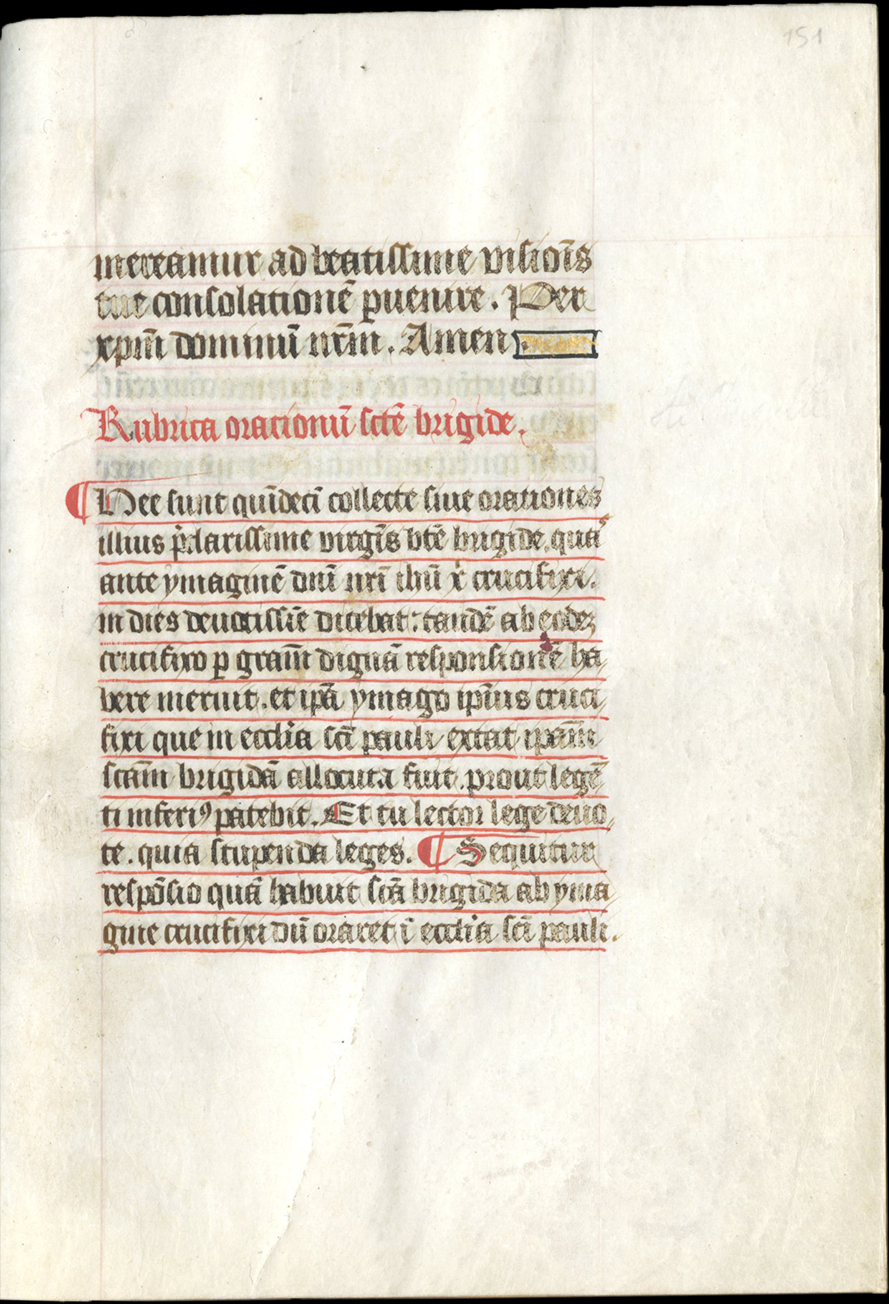 151
mereamur ad beatissime visiōis
tue consolationē ꝑuenire. Per
xp̄m dominū nr̄m. Amen
Rubrica orationū sc̄te brigide.
¶ Hec sunt quīdecī collecte siue orationes
illius p̄clarissime virgīs bt̄e brigide, quā
ante ymaginē dn̄i nr̄i ihū x̄ crucifixi.
in dies deuotissīe dicebat: tandē ab eodeꝫ
crucifixo ꝓ grām dignā responsionē ha
bere meruit. et ip̄a ymago ip̄ius cruci
fixi que in eccl̄ia sc̄i pauli extat ip̄am
sc̄am brigidā allocuta fuit. prout legē
ti inferiꝰ patebit. Et tu lector lege deuo
te. quia stupenda leges. ¶ Sequitur
respōsio quā habuit sc̄a brigida ab yma
gine crucifixi dū oraret ī eccl̄ia sc̄i pauli.